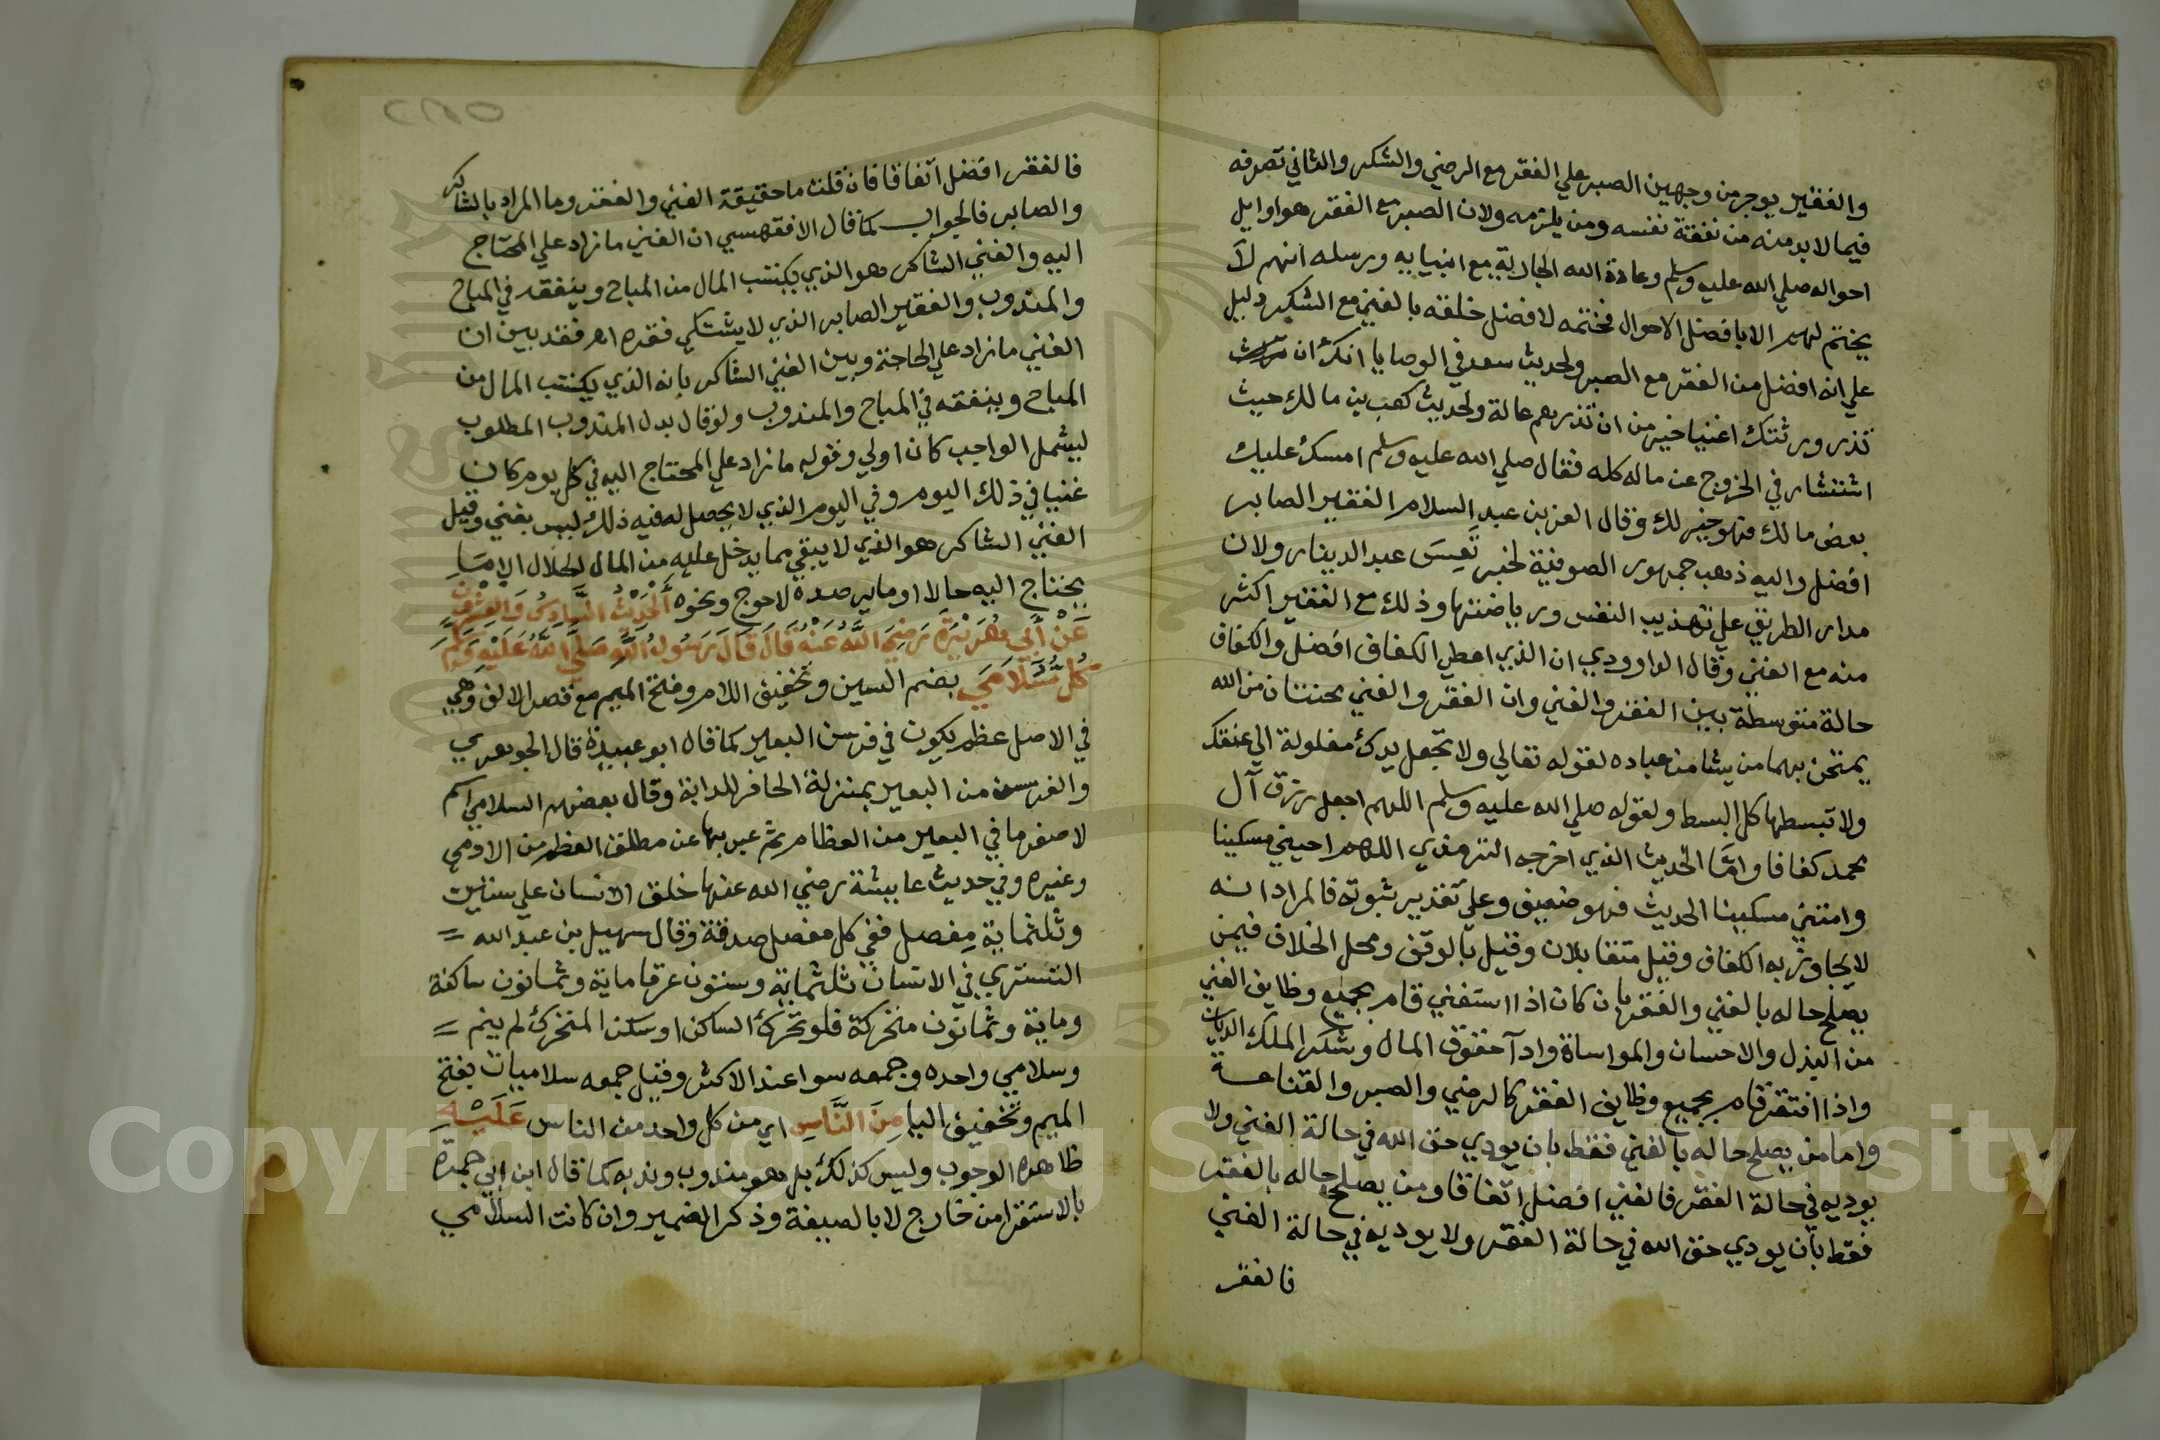 والفقير يوجر من وجهين الصبر علي الفقر مع الرضي والشكر والثاني تصرفه
فيما لابد منه من نفقة نفسه ومن يلزمه ولان الصبر مع الفقر هو اوايل
احواله صلي الله عليه وسلم وعادة الله الجارية مع انبيايه ورسله انهم لا
يختم لهم الا بافضل الاحوال فختمه لافضل خلقه بالغني مع الشكر دليل
علي انه افضل من الفقر مع الصبر ولحديث سعد في الوصايا انك ان
تذر ورثتك اغنيا خير من ان تذرهم عالة ولحديث كعب بن مالك حيث
استشار في الخروج عن ماله كله فقال صلي الله عليه وسلم امسك عليك
بعض مالك فهو خير لك وقال العز بن عبد السلام الفقير الصابر
افضل واليه ذهب جمهور الصوفية لخبر تَعِسَ عبد الدينار ولان
مدار الطريق علي تهذيب النفس ورياضتها وذلك مع الفقير اكثر
منه مع الغني وقال الداوودي ان الذي اعطي الكفاف افضل والكفاف
حالة متوسطة بين الفقر والغني وان الفقر والغني محنتان من الله
يمتحن بهما من يشا من عباده لقوله تعالي ولا تجعل يدك مغلولة الي عنقك
ولا تبسطها كل البسط ولقوله صلي الله عليه وسلم اللهم اجعل رزق آل
محمد كفافا واما الحديث الذي اخرجه الترمذي اللهم احيني مسكينا
وامتني مسكينا الحديث فهو ضعيف وعلي تقدير ثبوته فالمراد انه
لا يجاوز به الكفاف وقيل متقابلان وقيل بالوقف ومحل الخلاف فيمن
يصلح حاله بالغني والفقر بان كان اذا استغني قام بجميع وظايف الغني
من البذل والاحسان والمواساة وادآ حقوق المال وشكر الملك الديان
واذا افتقر قام بجميع وظايف الفقر كالرضي والصبر والقناعة
واما من يصلح حاله بالغني فقط بان يودي حق الله في حالة الغني ولا
يوديه في حالة الفقر فالغني افضل اتفاقا ومن يصلح حاله بالفقر
فقط بان يودي حق الله في حالة الفقر ولا يوديه في حالة الغني
فالفقر
فالفقر افضل اتفاقا فان قلت ما حقيقة الغني والفقر وما المراد بالشاكر
والصابر فالجواب كما قال الاقفهسي ان الغني ما زاد علي المحتاج
اليه والغني الشاكر هو الذي يكتسب المال من المباح وينفقه في المباح
والمندوب والفقير الصابر الذي لا يشتكي فقره اه فقد بين ان
الغني ما زاد علي الحاجة وبين الغني الشاكر بانه الذي يكتسب المال من
المباح وينفقه في المباح والمندوب ولو قال بدل المندوب المطلوب
ليشمل الواجب كان اولي وقوله ما زاد علي المحتاج اليه في كل يوم كان
غنيا في ذلك اليوم وفي اليوم الذي لا يحصل له فيه ذلك ليس بغني وقيل
الغني الشاكر هو الذي لا يبقي مما يدخل عليه من المال الحلال الا ما
يحتاج اليه حالا او ما يرصده لاحوج ونحوه اَلْحَدِيْثُ السَّادِسُ وَالعِشْرُونَ
عَنْ أَبِي هُرَيْرَةَ رَضِيَ اللَّهُ عَنْهُ قَالَ قَالَ رَسُولُ اللَّهِ صَلَّي اللَّهُ عَلَيْهِ وَسَلَّمَ
كُلُّ سُلَامَي بضم السين وتخفيف اللام وفتح الميم مع قصر الالف وهي
في الاصل عظم يكون في فرسن البعير كما قال ابو عبيدة قال الجوهري
والفرسن من البعير بمنزلة الحافر للدابة وقال بعضهم السلامي اسم
لاصغر ما في البعير من العظام ثم عبر بها عن مطلق العظم من الادمي
وغيره وفي حديث عايشة رضي الله عنها خلق الانسان علي ستين
وثلثماية مفصل ففي كل مفصل صدقة وقال سهيل بن عبد الله =
التستري في الانسان ثلثماية وستون عرقا ماية وثمانون ساكنة
وماية وثمانون متحركة فلو تحرك الساكن او سكن المتحرك لم ينم =
وسلامي واحده وجمعه سوا عند الاكثر وقيل جمعه سلاميات بفتح
الميم وتخفيف اليا مِنَ النَّاسِ اي من كل واحد من الناس عَلَيْهِ
ظاهره الوجوب وليس كذلك بل هو مندوب وندبه كما قال ابن ابي جمرة
بالاستقرا من خارج لا بالصيغة وذكر الضمير وان كانت السلامي